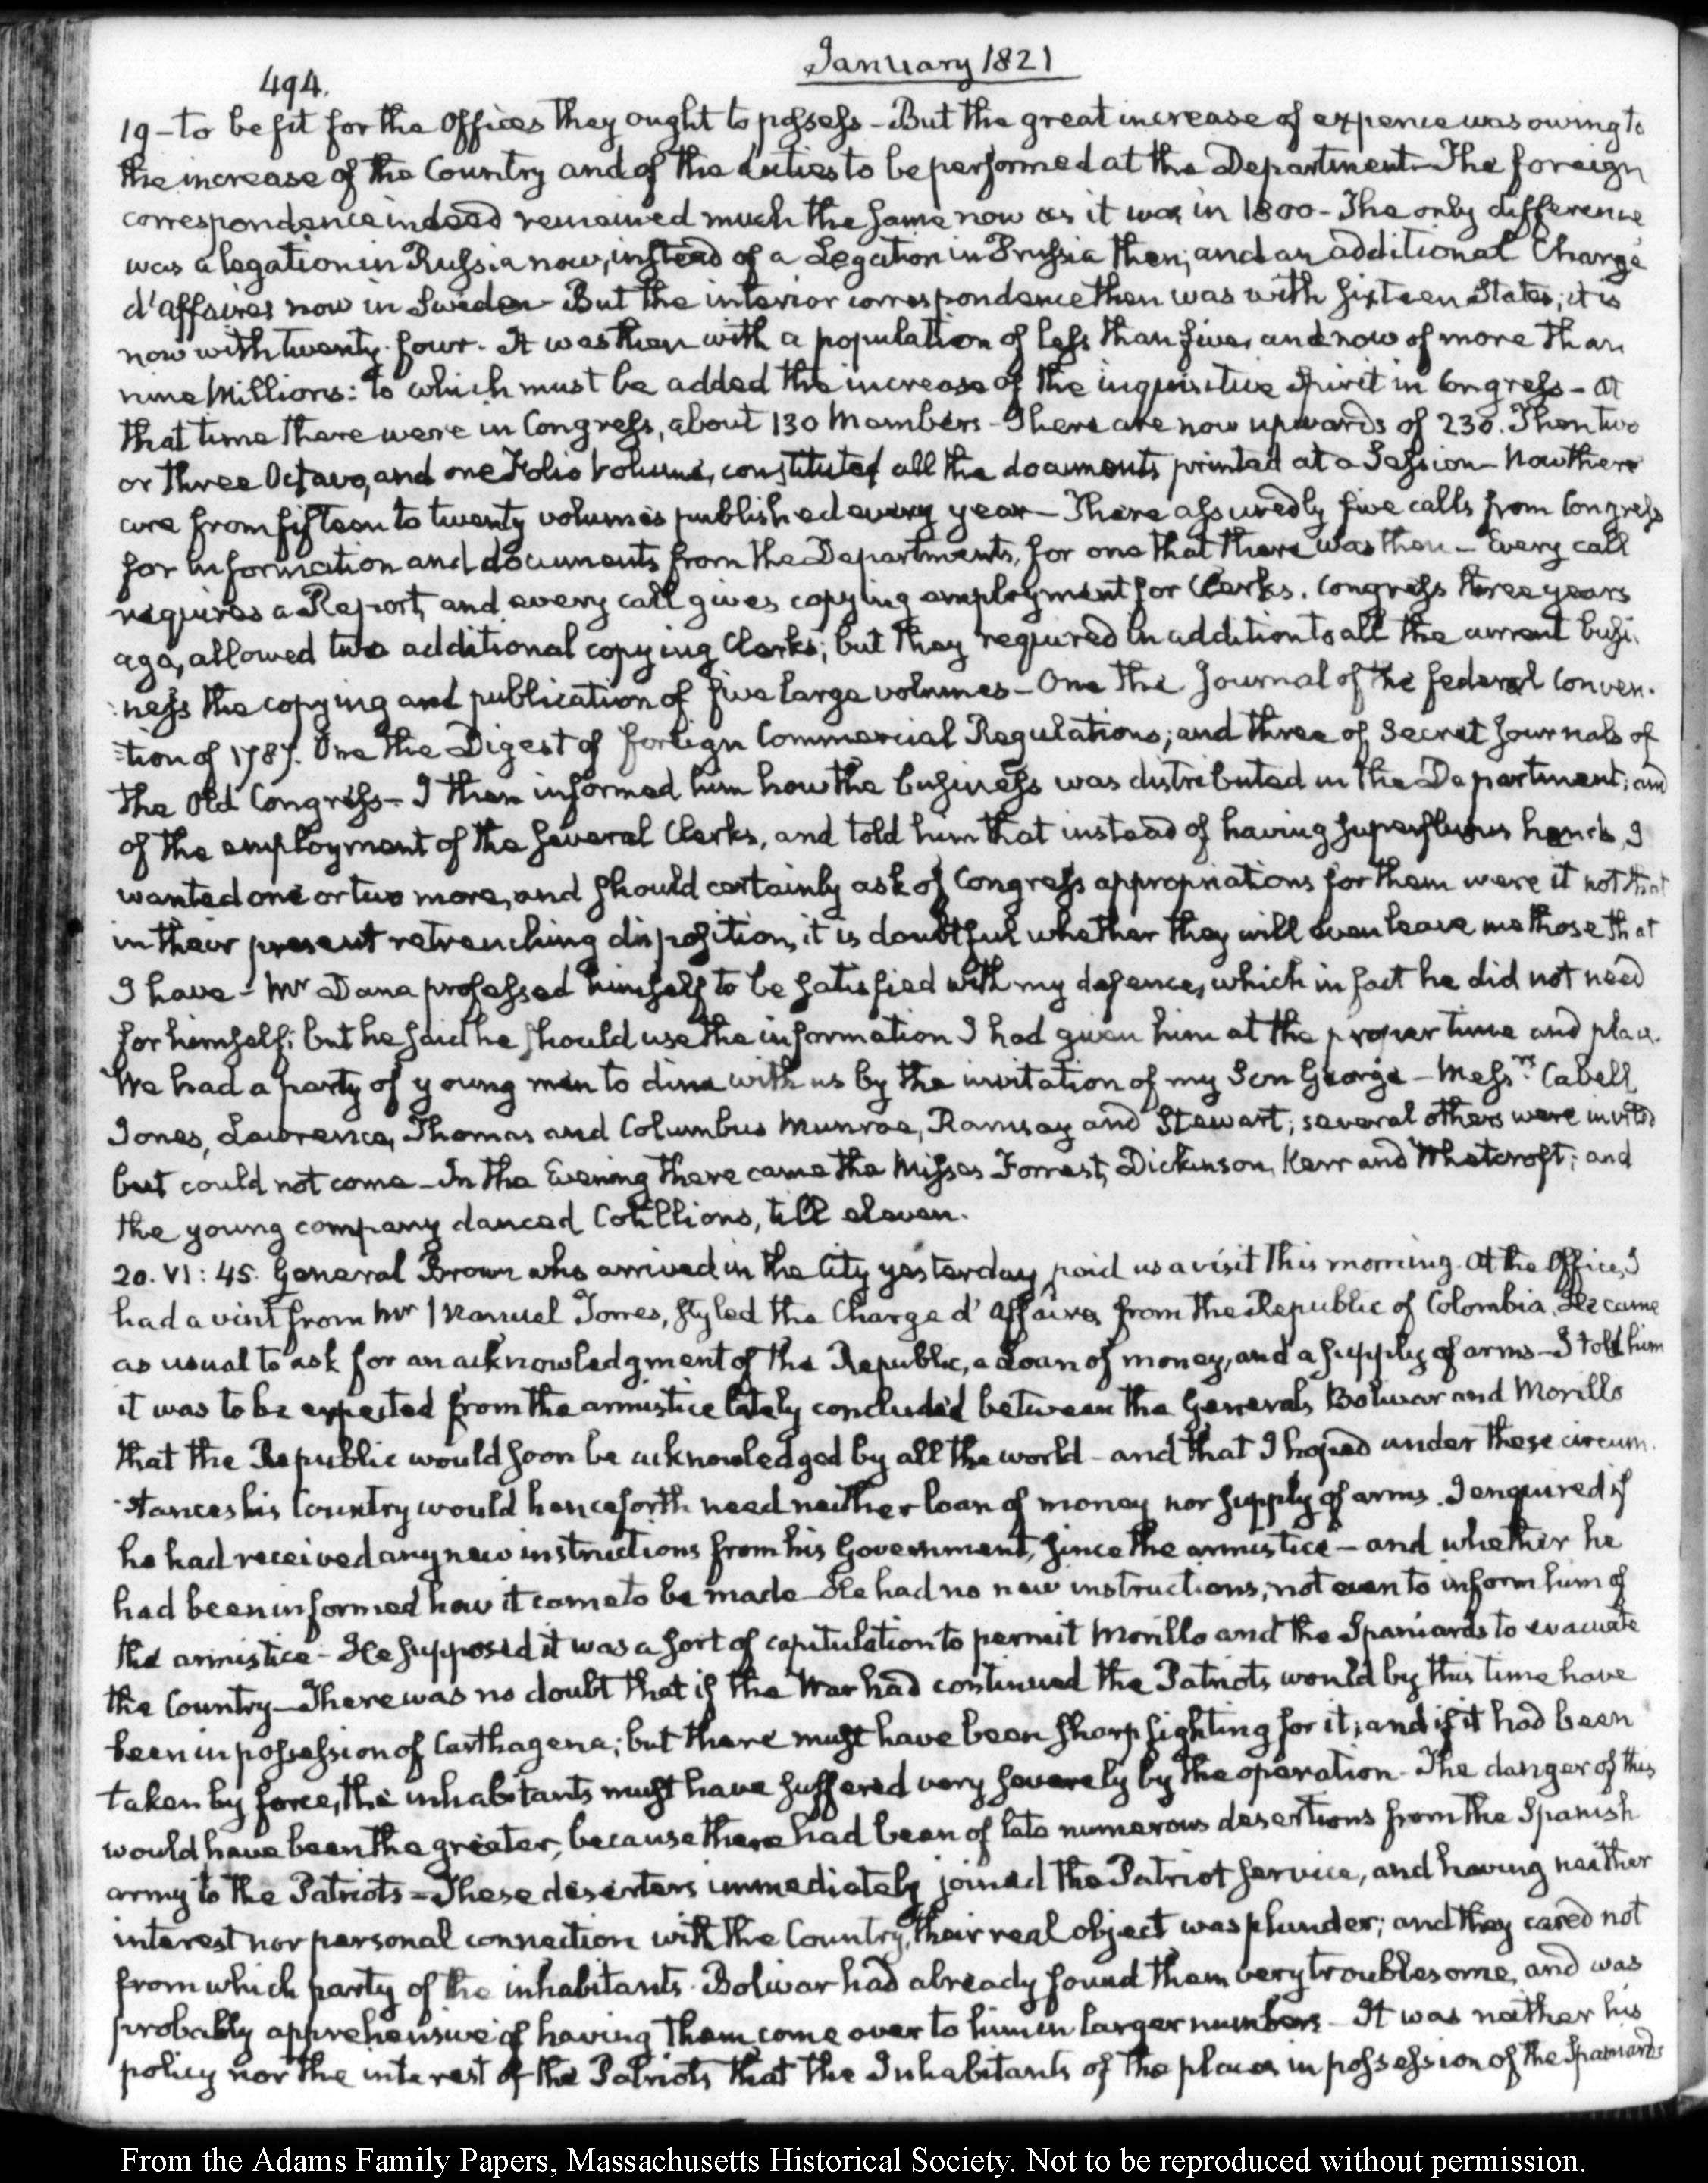 January 1821
494.
19 - to be fit for the Offices they ought to possess - But the great increase of expence was owing to
the increase of the Country and of the duties to be performed at the Department - The foreign
correspondence indeed remained much the same now as it was in 1800 - The only difference
was a legation in Russia now, instead of a Legation in Prussia then; and an additional Chargé
d'affaires now in Sweden - But the interior correspondence then was with sixteen States; it is
now with twenty-four. It was then with a population of less than five, and now of more than
nine Millions: to which must be added the increase of the inquisitive Spirit in Congress - At
that time there were in Congress, about 130 Members - There are now upwards of 230. Then two
or three Octavo, and one Folio volume, constituted all the documents printed at a Session - Now there
are from fifteen to twenty volumes published every year - There assuredly five calls from Congress
for information and documents from the Departments, for one that there was then - Every call
requires a Report, and every call gives copying employment for Clerks. Congress three years
ago, allowed two additional copying Clerks; but they required in addition to all the current busi-
:ness the copying and publication of five large volumes - One the Journal of the federal Conven-
:tion of 1787. One the Digest of foreign Commercial Regulations; and three of Secret Journals of
the Old Congress - I then informed him how the business was distributed in the Department; and
of the employment of the several Clerks, and told him that instead of having superfluous hands, I
wanted one or two more, and should certainly ask of Congress appropriations for them were it not that
in their present retrenching disposition, it is doubtful whether they will even leave me those that
I have - Mr Dana professed himself to be satisfied with my defence, which in fact he did not need
for himself; but he said he should use the information I had given him at the proper time and place.
We had a party of young men to dine with us by the invitation of my Son George - Messrs. Cabell,
Jones, Lawrence, Thomas and Columbus Munroe, Ramsay and Stewart; several others were invited
but could not come - In the Evening there came the Misses Forrest, Dickinson, Kerr and Whetcroft; and
the young company danced Cotillions, till eleven.
20. VI: 45. General Brown who arrived in the City yesterday, paid us a visit this morning. At the Office, I
had a visit from Mr Manuel Torres, styled the Charge d'Affaires from the Republic of Colombia. He came
as usual to ask for an acknowledgment of the Republic, a loan of money, and a supply of arms - I told him
it was to be expected from the armistice lately concluded between the Generals Bolivar and Morillo
that the Republic would soon be acknowledged by all the world - and that I hoped under these circum-
-stances his Country would henceforth need neither loan of money nor supply of arms. I enquired if
he had received any new instructions from his Government, since the armistice - and whether he
had been informed how it came to be made - He had no new instructions; not even to inform him of
the armistice - He supposed it was a sort of capitulation to permit Morillo and the Spaniards to evacuate
the Country - There was no doubt that if the War had continued the Patriots would by this time have
been in possession of Carthagena; but there must have been sharp fighting for it; and if it had been
taken by force, the inhabitants must have suffered very severely by the operation. The danger of this
would have been the greater, because there had been of late numerous desertions from the Spanish
army to the Patriots - These deserters immediately joined the Patriot service, and having neither
interest nor personal connection with the Country, their real object was plunder; and they cared not
from which party of the inhabitants. Bolivar had already found them very troublesome, and was
probably apprehensive of having them come over to him in larger numbers - It was neither his
policy nor the interest of the Patriots that the Inhabitants of the places in possession of the Spaniards
From the Adams Family Papers, Massachusetts Historical Society. Not to be reproduced without permission.